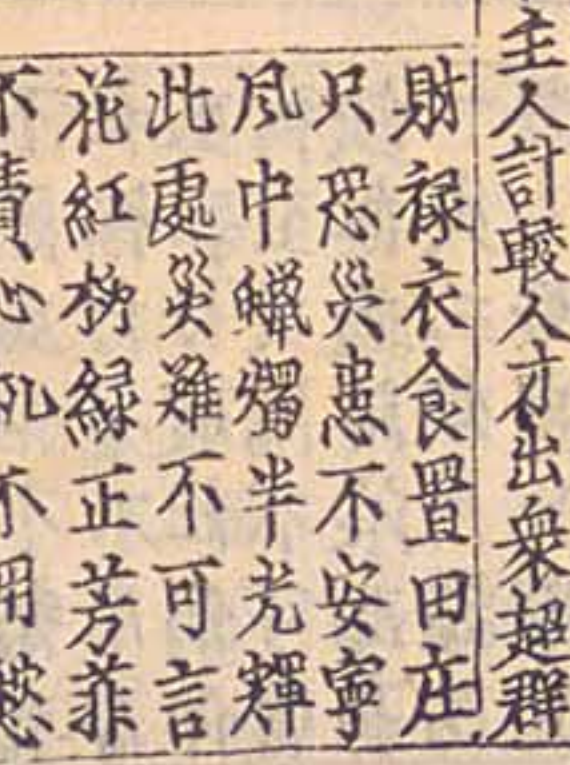 主人計較人才出衆超群
財禄衣食置田庄
只恐災患不安寧
風中蠟燭半光輝
此處災難不可言
花紅柳緑正芳菲
不費心机不用愁